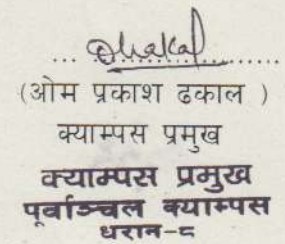 ... Dhakal
(ओम प्रकाश ढकाल )
क्याम्पस प्रमुख
क्याम्पस प्रमुख
पूर्वाञ्चल क्याम्पस
धरान-८